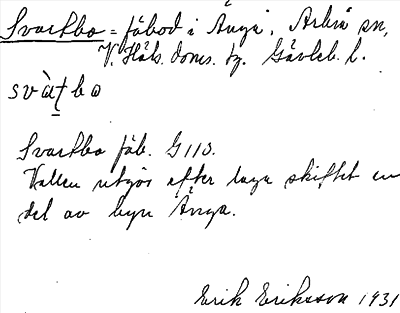 Svartbo = fäbod i Änga, Arbrå sn,
V. Häls. doms. tg. Gävleb. l.
svàt̠bo
Svartbo fäb. G 113.
Vallen utgör efter laga skiftet en
del av byn Änga.
Erik Eriksson 1931